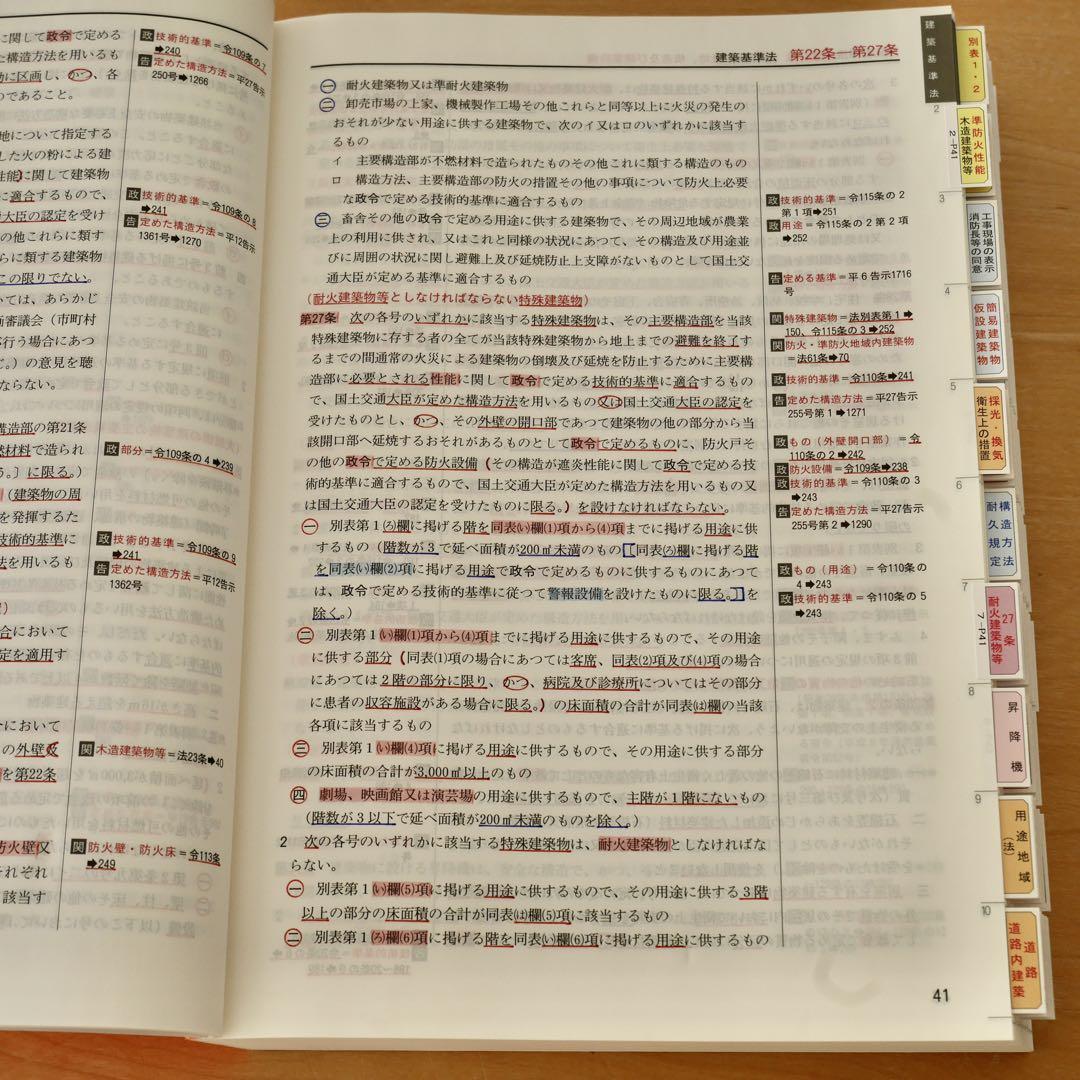 に関して政令で定める
め た構造方法を用いるも
動に区画し、かつ、各
のであること。
地について指定する
した火の粉による建
性能)に関して建築物
に適合するもので、
大臣の認定を受け
の他これらに類す
らに類する建築物
この限りでない。
いては、あらかじ
画審議会(市町村
が行う場合にあつ
じ。)の意見を聴
ならない。
構造部の第21条
燃材料で造られ
う。〕に限る。)
(建築物の周
を発揮するた
技術的基準に
法を用いるも
合において
定を適用す
合において
の外壁及
を第22条
防火壁又
それぞれ
該当す
政 技術的基準=令109条の7
➡240
告 定めた構造方法=平27告示
250号➡1266
政 技術的基準=令109条の8
➡241
告 定めた構造方法=平12告示
1361号➡1270
政 部分=令109条の4➡239
政 技術的基準=令109条の9
➡241
告 定めた構造方法=平12告示
1362号
関 木造建築物等=法23条➡40
関 防火壁・防火床=令113条
➡249
建築基準法 第22条―第27条
一 耐火建築物又は準耐火建築物
二 卸売市場の上家、機械製作工場その他これらと同等以上に火災の発生の
おそれが少ない用途に供する建築物で、次のイ又はロのいずれかに該当す
るもの
イ 主要構造部が不燃材料で造られたものその他これに類する構造のもの
ロ 構造方法、主要構造部の防火の措置その他の事項について防火上必要
な政令で定める技術的基準に適合するもの
三 畜舎その他の政令で定める用途に供する建築物で、その周辺地域が農業
上の利用に供され、又はこれと同様の状況にあつて、その構造及び用途並
びに周囲の状況に関し避難上及び延焼防止上支障がないものとして国土交
通大臣が定める基準に適合するもの
(耐火建築物等としなければならない特殊建築物)
第27条 次の各号のいずれかに該当する特殊建築物は、その主要構造部を当該
特殊建築物に存する者の全てが当該特殊建築物から地上までの避難を終了す
るまでの間通常の火災による建築物の倒壊及び延焼を防止するために主要構
造部に必要とされる性能に関して政令で定める技術的基準に適合するもの
で、国土交通大臣が定めた構造方法を用いるもの又は国土交通大臣の認定を
受けたものとし、かつ、その外壁の開口部であつて建築物の他の部分から当
該開口部へ延焼するおそれがあるものとして政令で定めるものに、防火戸そ
の他の政令で定める防火設備(その構造が遮炎性能に関して政令で定める技
術的基準に適合するもので、国土交通大臣が定めた構造方法を用いるもの又
は国土交通大臣の認定を受けたものに限る。)を設けなければならない。
一 別表第1(ろ)欄に掲げる階を同表(い)欄(1)項から(4)項までに掲げる用途に供
するもの(階数が3で延べ面積が200㎡未満のもの〔同表(ろ)欄に掲げる階
を同表(い)欄(2)項に掲げる用途で政令で定めるものに供するものにあつて
は、政令で定める技術的基準に従つて警報設備を設けたものに限る。〕を
除く。)
二 別表第1(い)欄(1)項から(4)項までに掲げる用途に供するもので、その用途
に供する部分(同表(1)項の場合にあつては客席、同表(2)項及び(4)項の場合
にあつては2階の部分に限り、かつ、病院及び診療所についてはその部分
に患者の収容施設がある場合に限る。)の床面積の合計が同表(は)欄の当該
各項に該当するもの
三 別表第1(い)欄(4)項に掲げる用途に供するもので、その用途に供する部分
の床面積の合計が3,000㎡以上のもの
四 劇場、映画館又は演芸場の用途に供するもので、主階が1階にないもの
(階数が3以下で延べ面積が200㎡未満のものを除く。)
2 次の各号のいずれかに該当する特殊建築物は、耐火建築物としなければな
らない。
一 別表第1(い)欄(5)項に掲げる用途に供するもので、その用途に供する3階
以上の部分の床面積の合計が同表(は)欄(5)項に該当するもの
二 別表第1(ろ)欄(6)項に掲げる階を同表(い)欄(6)項に掲げる用途に供するもの
政 技術的基準=令115条の2
第1項➡251
政 用途=令115条の2第2項
➡252
告 定める基準=平6告示1716
号
関 特殊建築物=法別表第1➡
150、令115条の3➡252
関 防火・準防火地域内建築物
=法61条➡70
政 技術的基準=令110条➡241
告 定めた構造方法=平27告示
255号第1➡1271
政 もの(外壁開口部)=令
110条の2➡242
政 防火設備=令109条➡238
政 技術的基準=令110条の3
➡243
告 定めた構造方法=平27告示
255号第2➡1290
政 もの(用途)=令110条の
4➡243
政 技術的基準=令110条の5
➡243
41
建築基準法
別表1・2
2
準防火性能
木造建築物等
2-P41
3
工事現場の表示
消防長等の同意
4
簡易建築物
仮設建築物
5
採光・換気
衛生上の措置
6
構造方法
耐久規定
7
27条
耐火建築物等
7-P41
8
昇降機
9
用途地域
(法)
10
道路
道路内建築